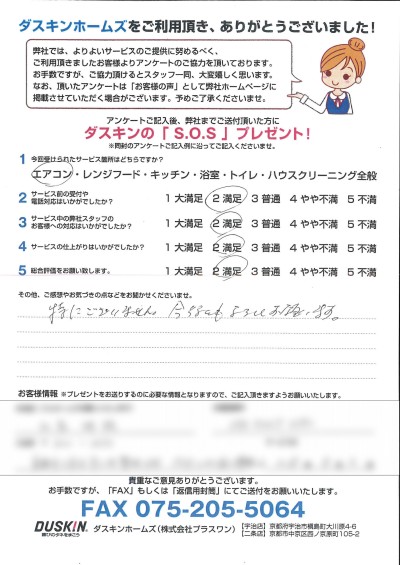 ダスキンホームズをご利用頂き、ありがとうございました!
弊社では、よりよいサービスのご提供に努めるべく、
ご利用頂きましたお客様よりアンケートのご協力を頂いております。
お手数ですが、ご協力頂けるとスタッフ一同、大変嬉しく思います。
なお、頂いたアンケートは「お客様の声」として弊社ホームページに
掲載させていただく場合がございます。予めご了承くださいませ。
アンケートご記入後、弊社までご送付頂いた方に
ダスキンの「S.O.S」プレゼント!
※同封のアンケートご記入例に沿ってご記入くださいませ。
1 今回受けられたサービス箇所はどちらですか?
エアコン・レンジフード・キッチン・浴室・トイレ・ハウスクリーニング全般
2 サービス前の受付や
電話対応はいかがでしたか? 1 大満足 2 満足 3 普通 4 やや不満 5 不満
3 サービス中の弊社スタッフの
お客様への対応はいかがでしたか? 1 大満足 2 満足 3 普通 4 やや不満 5 不満
4 サービスの仕上がりはいかがでしたか? 1 大満足 2 満足 3 普通 4 やや不満 5 不満
5 総合評価をお願い致します。 1 大満足 2 満足 3 普通 4 やや不満 5 不満
その他、ご感想やお気づきの点などをお聞かせくださいませ。
特にございません。今後ともよろしくお願います。
お客様情報 ※プレゼントをお送りするのに必要な情報となりますので、ご記入頂きますようお願いいたします。
貴重なご意見ありがとうございました。
お手数ですが、「FAX」もしくは「返信用封筒」にてご送付をお願いいたします。
FAX 075-205-5064
DUSKIN 喜びのタネをまこう ダスキンホームズ(株式会社プラスワン) 【宇治店】京都府宇治市槇島町大川原4-6
【二条店】京都市中京区西ノ京原町105-2